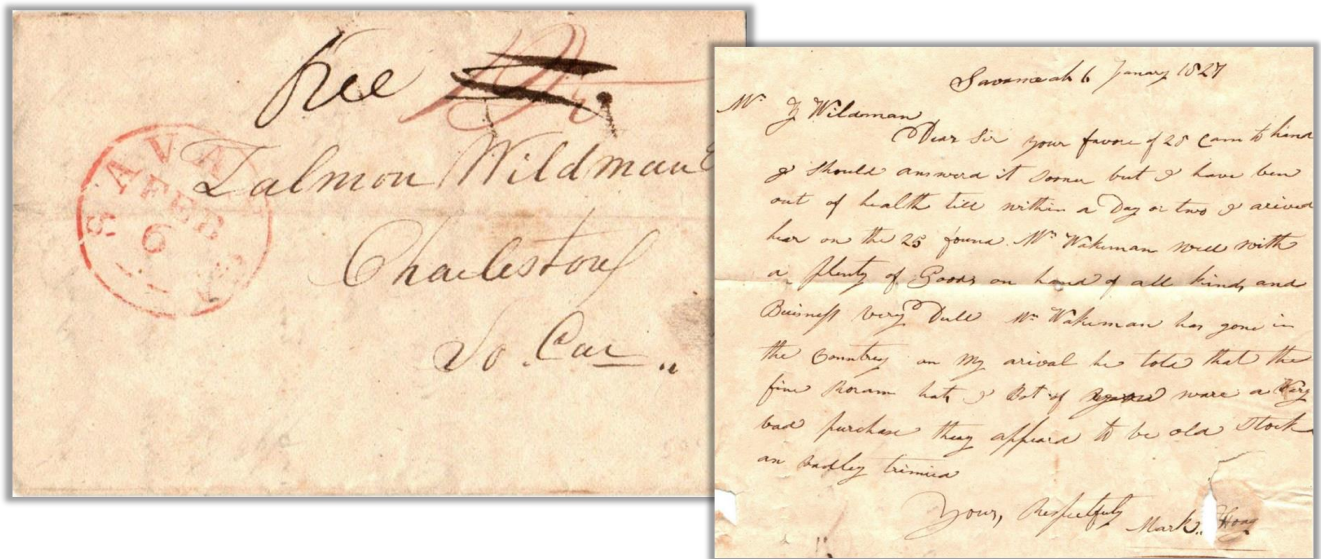 free
SAVA
FEB
6
Zalmon Wildman
Charleston
So Car
Savannah 6 Janary 1827
Mr Z Wildman
Dear Sir your favor of 28 Cam to hand
I should answerd it sooner but I have ben
out of health till within a Day or two I arived
hear on the 25 found Mr Wakeman well with
a plenty of Goods on hand of all kinds and
Buisness very Dull Mr Wakeman has gone in
the Country on my arival he told that the
fine Roram hats I Bot of ware a Very
bad purchase they appeard to be old Stock
an badley trimied
Yours, Respectfuly
Mark Hoag